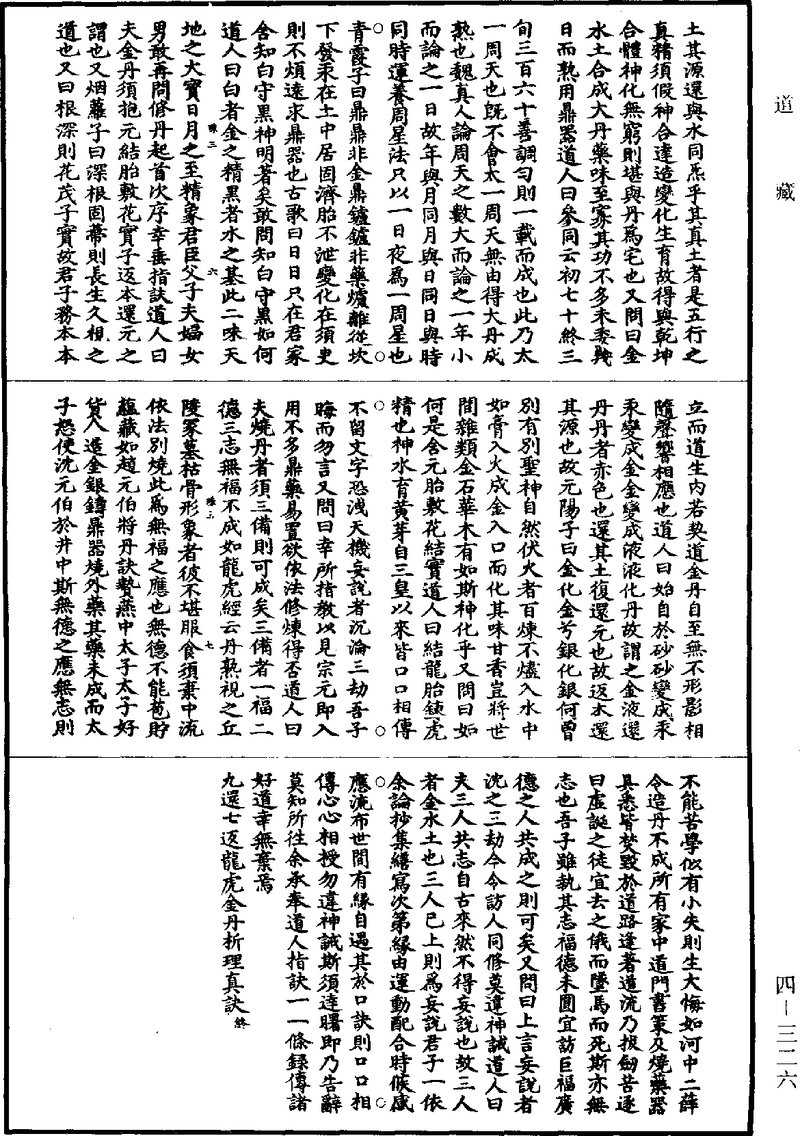 道藏
土其源還與水同炁乎其真土者是五行之
真精須假神合達造變化生育故得與乾坤
合體神化無窮則堪與丹為宅也又問曰金
水土合成大丹藥味至寡其功不多未委幾
日而熟用鼎器道人曰參同云初七十終三
旬三百六十善調勻則一載而成也此乃太
一周天也既不會太一周天無由得大丹成
熟也魏真人論周天之數大而論之一年小
而論之一日故年與月同月與日同日與時
同時運養周星法只以一日夜為一周星也
青霞子曰鼎鼎非金鼎鑪鑪非藥爐離從坎
下發汞在土中居固濟胎不泄變化在須臾
則不煩遠求鼎器也古歌曰日日只在君家
舍知白守黑神明著矣敢問知白守黑如何
道人曰白者金之精黑者水之基此二味天
珠三 六
地之大寶日月之至精象君臣父子夫婦女
男敢再問修丹起首次序幸垂指訣道人曰
夫金丹須抱元結胎敷花實子返本還元之
謂也又烟蘿子曰深根固蔕則長生久視之
道也又曰根深則花茂子實故君子務本本
立而道生內若契道金丹自至無不形影相
隨聲響相應也道人曰始自於砂砂變成汞
汞變成金金變成液液化丹故謂之金液還
丹丹者赤色也還其土復還元也故返本還
其源也故元陽子曰金化金兮銀化銀何曾
別有別聖神自然伏火者百煉不燼入水中
如膏入火成金入口而化其味甘香豈將世
間雜類金石草木有如斯神化乎又問曰如
何是含元胎敷花結實道人曰結龍胎鍊虎
精也神水育黃芽自三皇以來皆口口相傳
不留文字恐洩天機妄說者沉淪三劫吾子
晦而勿言又問曰幸所指教以見宗元即入
用不多鼎藥易置欲依法修煉得否道人曰
夫燒丹者須三備則可成矣三備者一福二
德三志無福不成如龍虎經云丹熟視之丘
珠三 七
陵冢墓枯骨形象者彼不堪服食須棄中流
依法別燒此為無福之應也無德不能苞貯
蘊藏如趙元伯將丹訣贄燕中太子太子好
貨人造金銀鑄鼎器燒外藥其藥未成而太
子怒使沈元伯於井中斯無德之應無志則
不能苦學似有小失則生大悔如河中二薛
令造丹不成所有家中道門書策及燒藥器
具悉皆焚毀於道路逢著道流乃拔劒苦逐
曰虛誕之徒宜去之俄而墜馬而死斯亦無
志也吾子雖執其志福德未圓宜訪巨福廣
德之人共成之則可矣又問曰上言妄說者
沈之三劫今令訪人同修莫違神誡道人曰
夫三人共志自古來然不得妄說也故三人
者金水土也三人已上則為妄說君子一依
余論抄集繕寫次第緣由運動配合時候感
應流布世間有緣自遇其於口訣則口口相
傳心心相授勿違神誡斯須達曙即乃告辭
莫知所往余承奉道人指訣一一條錄傳諸
好道幸無棄焉
九還七返龍虎金丹析理真訣 終
四—三二六